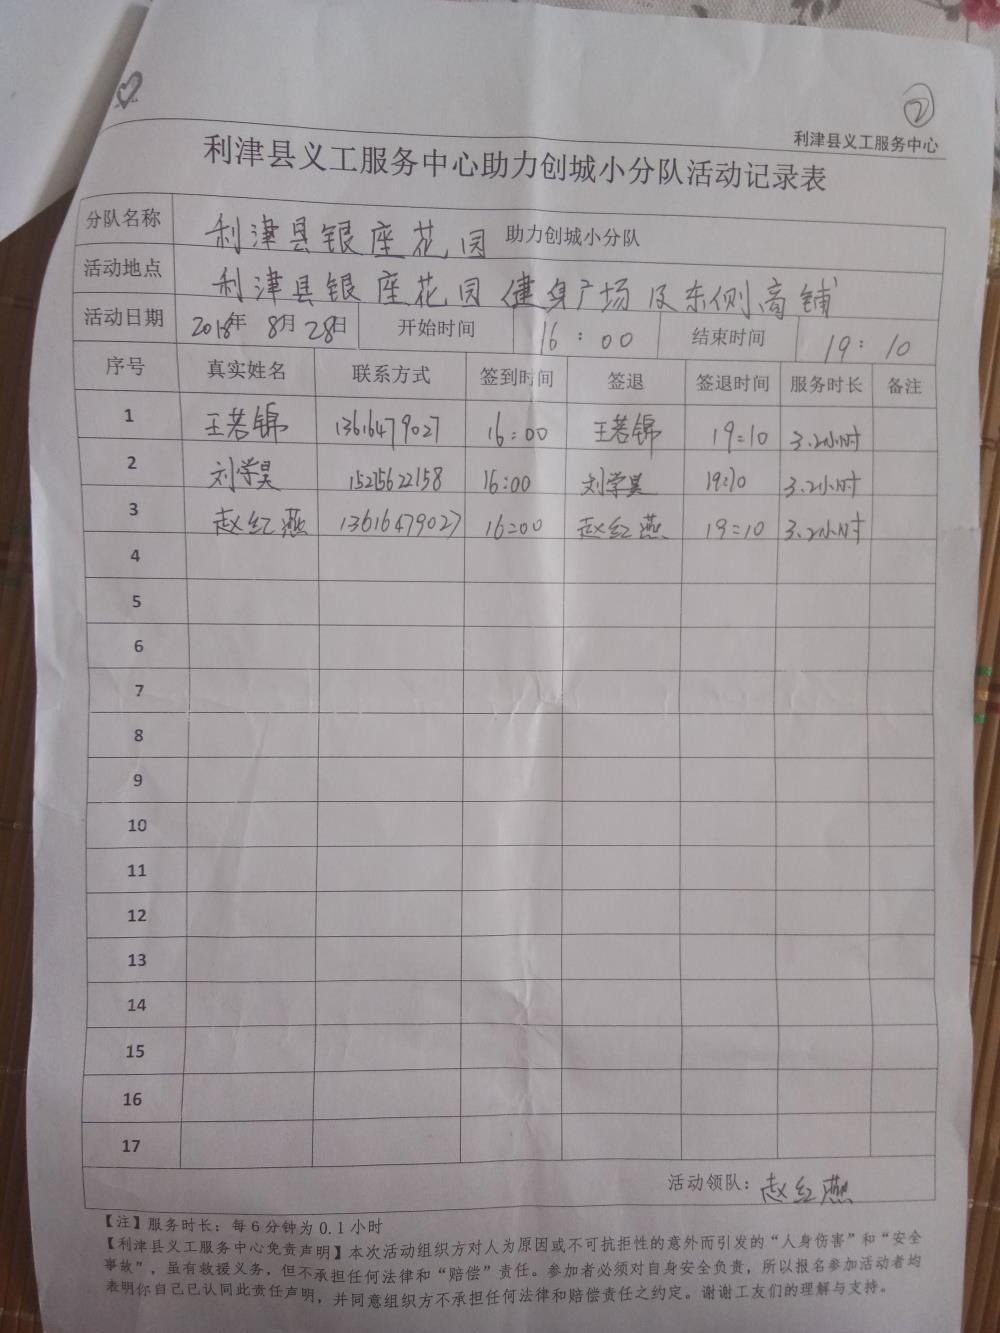 ②
利津县义工服务中心
利津县义工服务中心助力创城小分队活动记录表
分队名称 利津县银座花园 助力创城小分队
活动地点 利津县银座花园健身广场及东侧商铺
活动日期 2018年8月28日 开始时间 16:00 结束时间 19:10
序号 真实姓名 联系方式 签到时间 签退 签退时间 服务时长 备注
1 王若锦 13616479027 16:00 王若锦 19:10 3.2小时
2 刘学昊 15215622158 16:00 刘学昊 19:10 3.2小时
3 赵红燕 13616479027 16:00 赵红燕 19:10 3.2小时
4
5
6
7
8
9
10
11
12
13
14
15
16
17
活动领队：赵红燕
【注】服务时长：每6分钟为0.1小时
【利津县义工服务中心免责声明】本次活动组织方对人为原因或不可抗拒性的意外而引发的“人身伤害”和“安全
事故”，虽有救援义务，但不承担任何法律和“赔偿”责任。参加者必须对自身安全负责，所以报名参加活动者均
表明你自己已认同此责任声明，并同意组织方不承担任何法律和赔偿责任之约定。谢谢工友们的理解与支持。